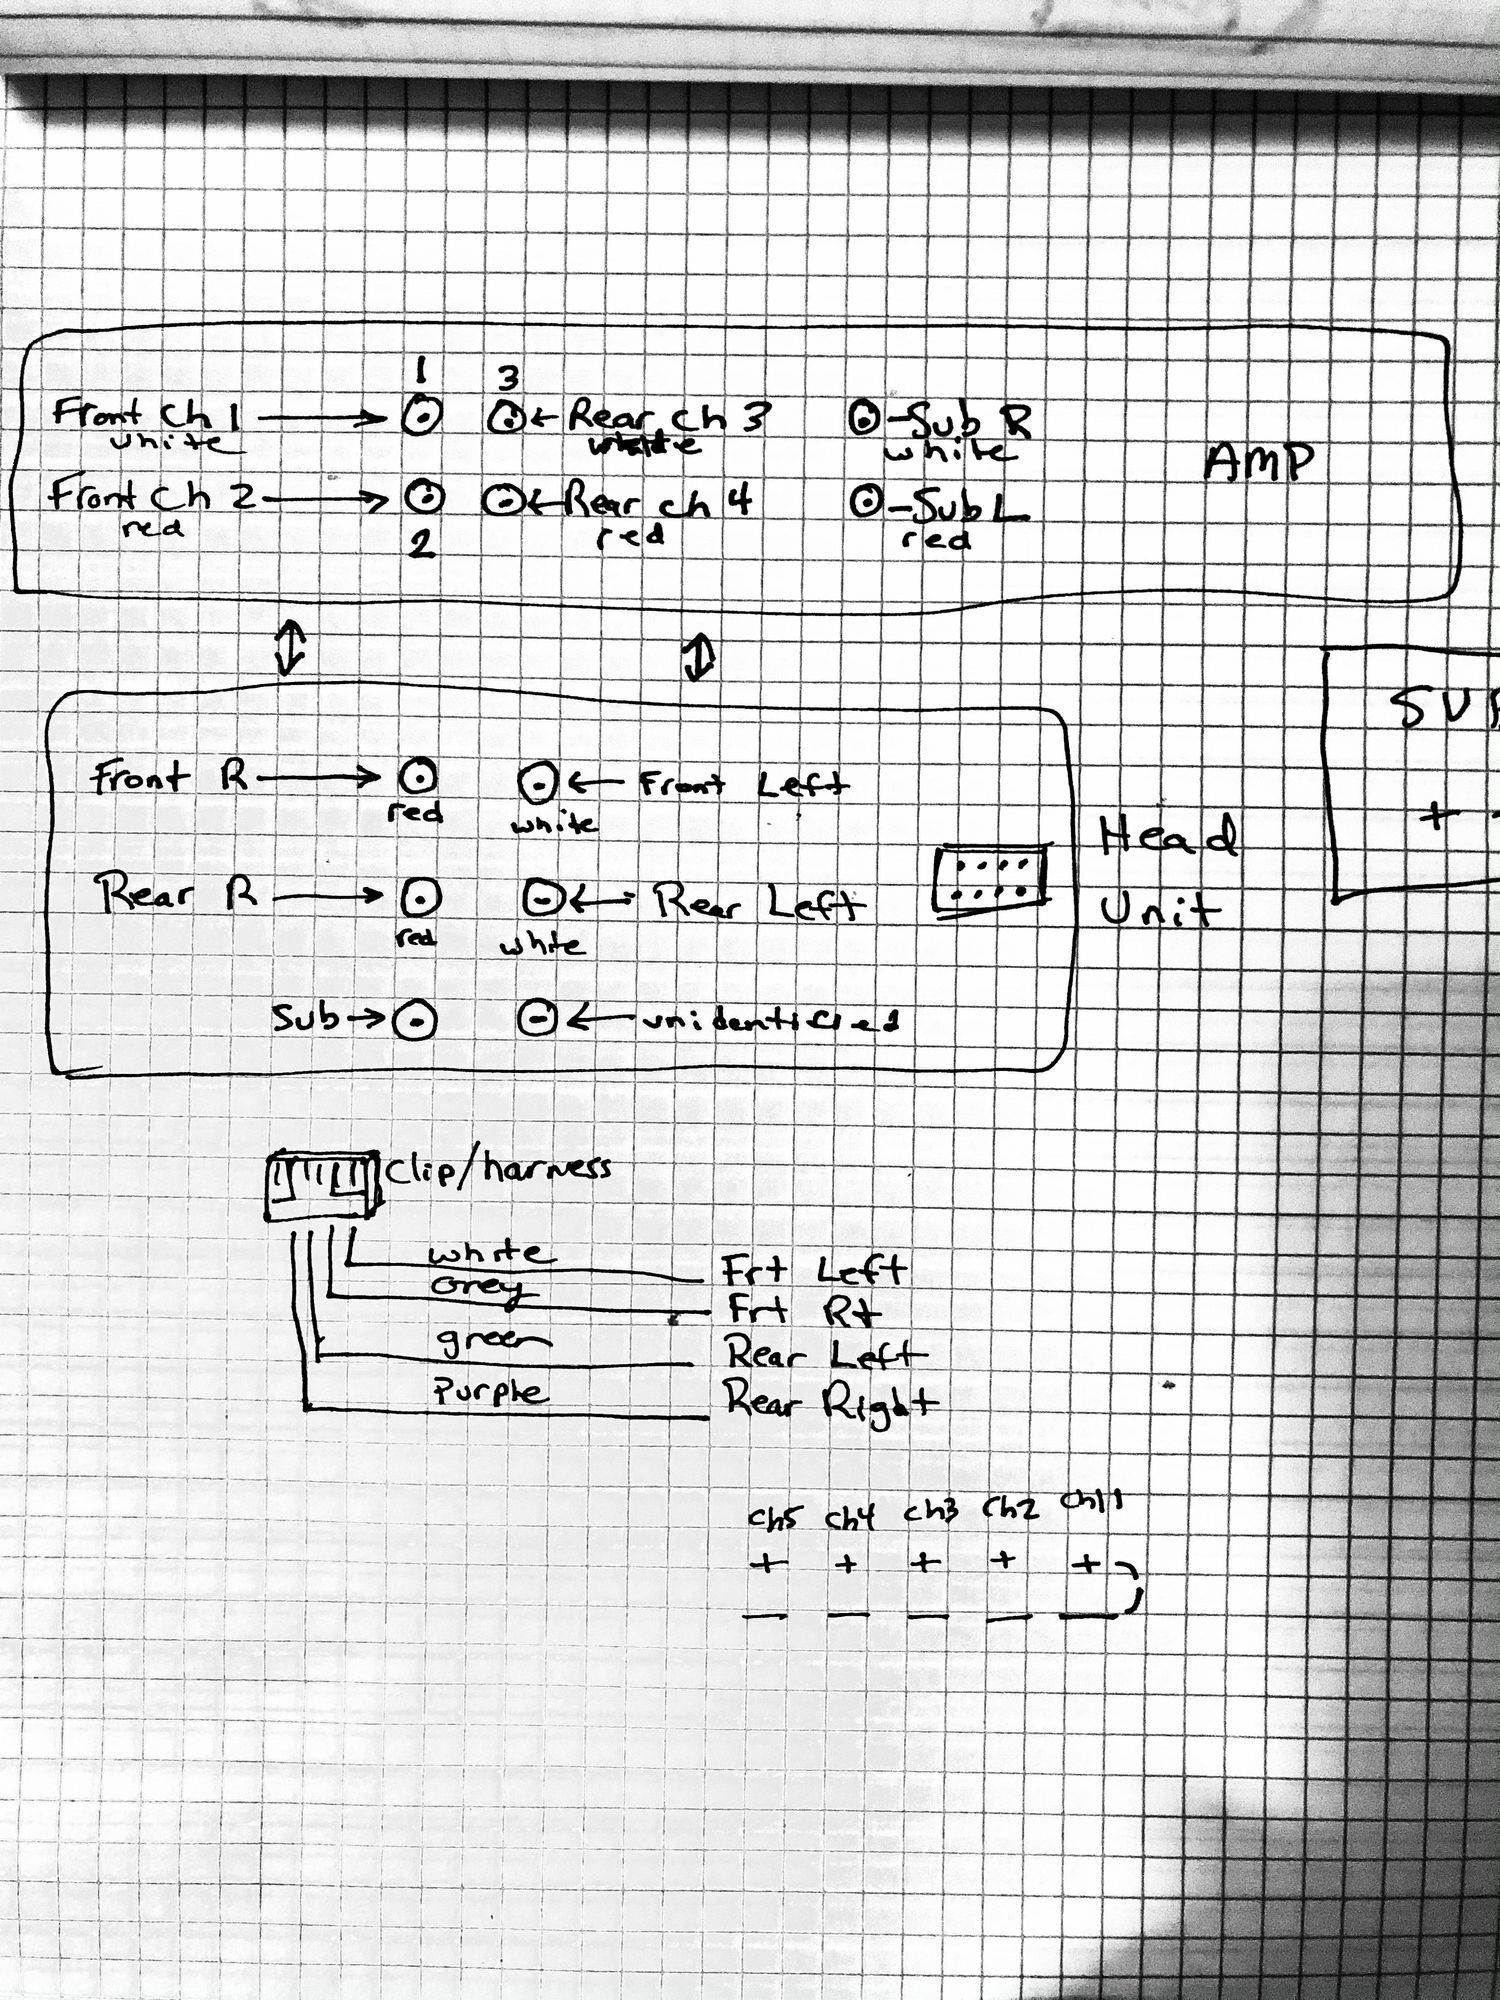 1
3
Front Ch 1 Rear ch 3 Sub R
white white white
AMP
Front Ch 2 Rear ch 4 Sub L
red red red
2
Front R Front Left
red white
Head
Rear R Rear Left
Unit
red white
Sub unidentified
+
Clip/harness
white Frt Left
Grey Frt Rt
green Rear Left
Purple Rear Right
ch5 ch4 ch3 ch2
+ + + + +
— — — — —